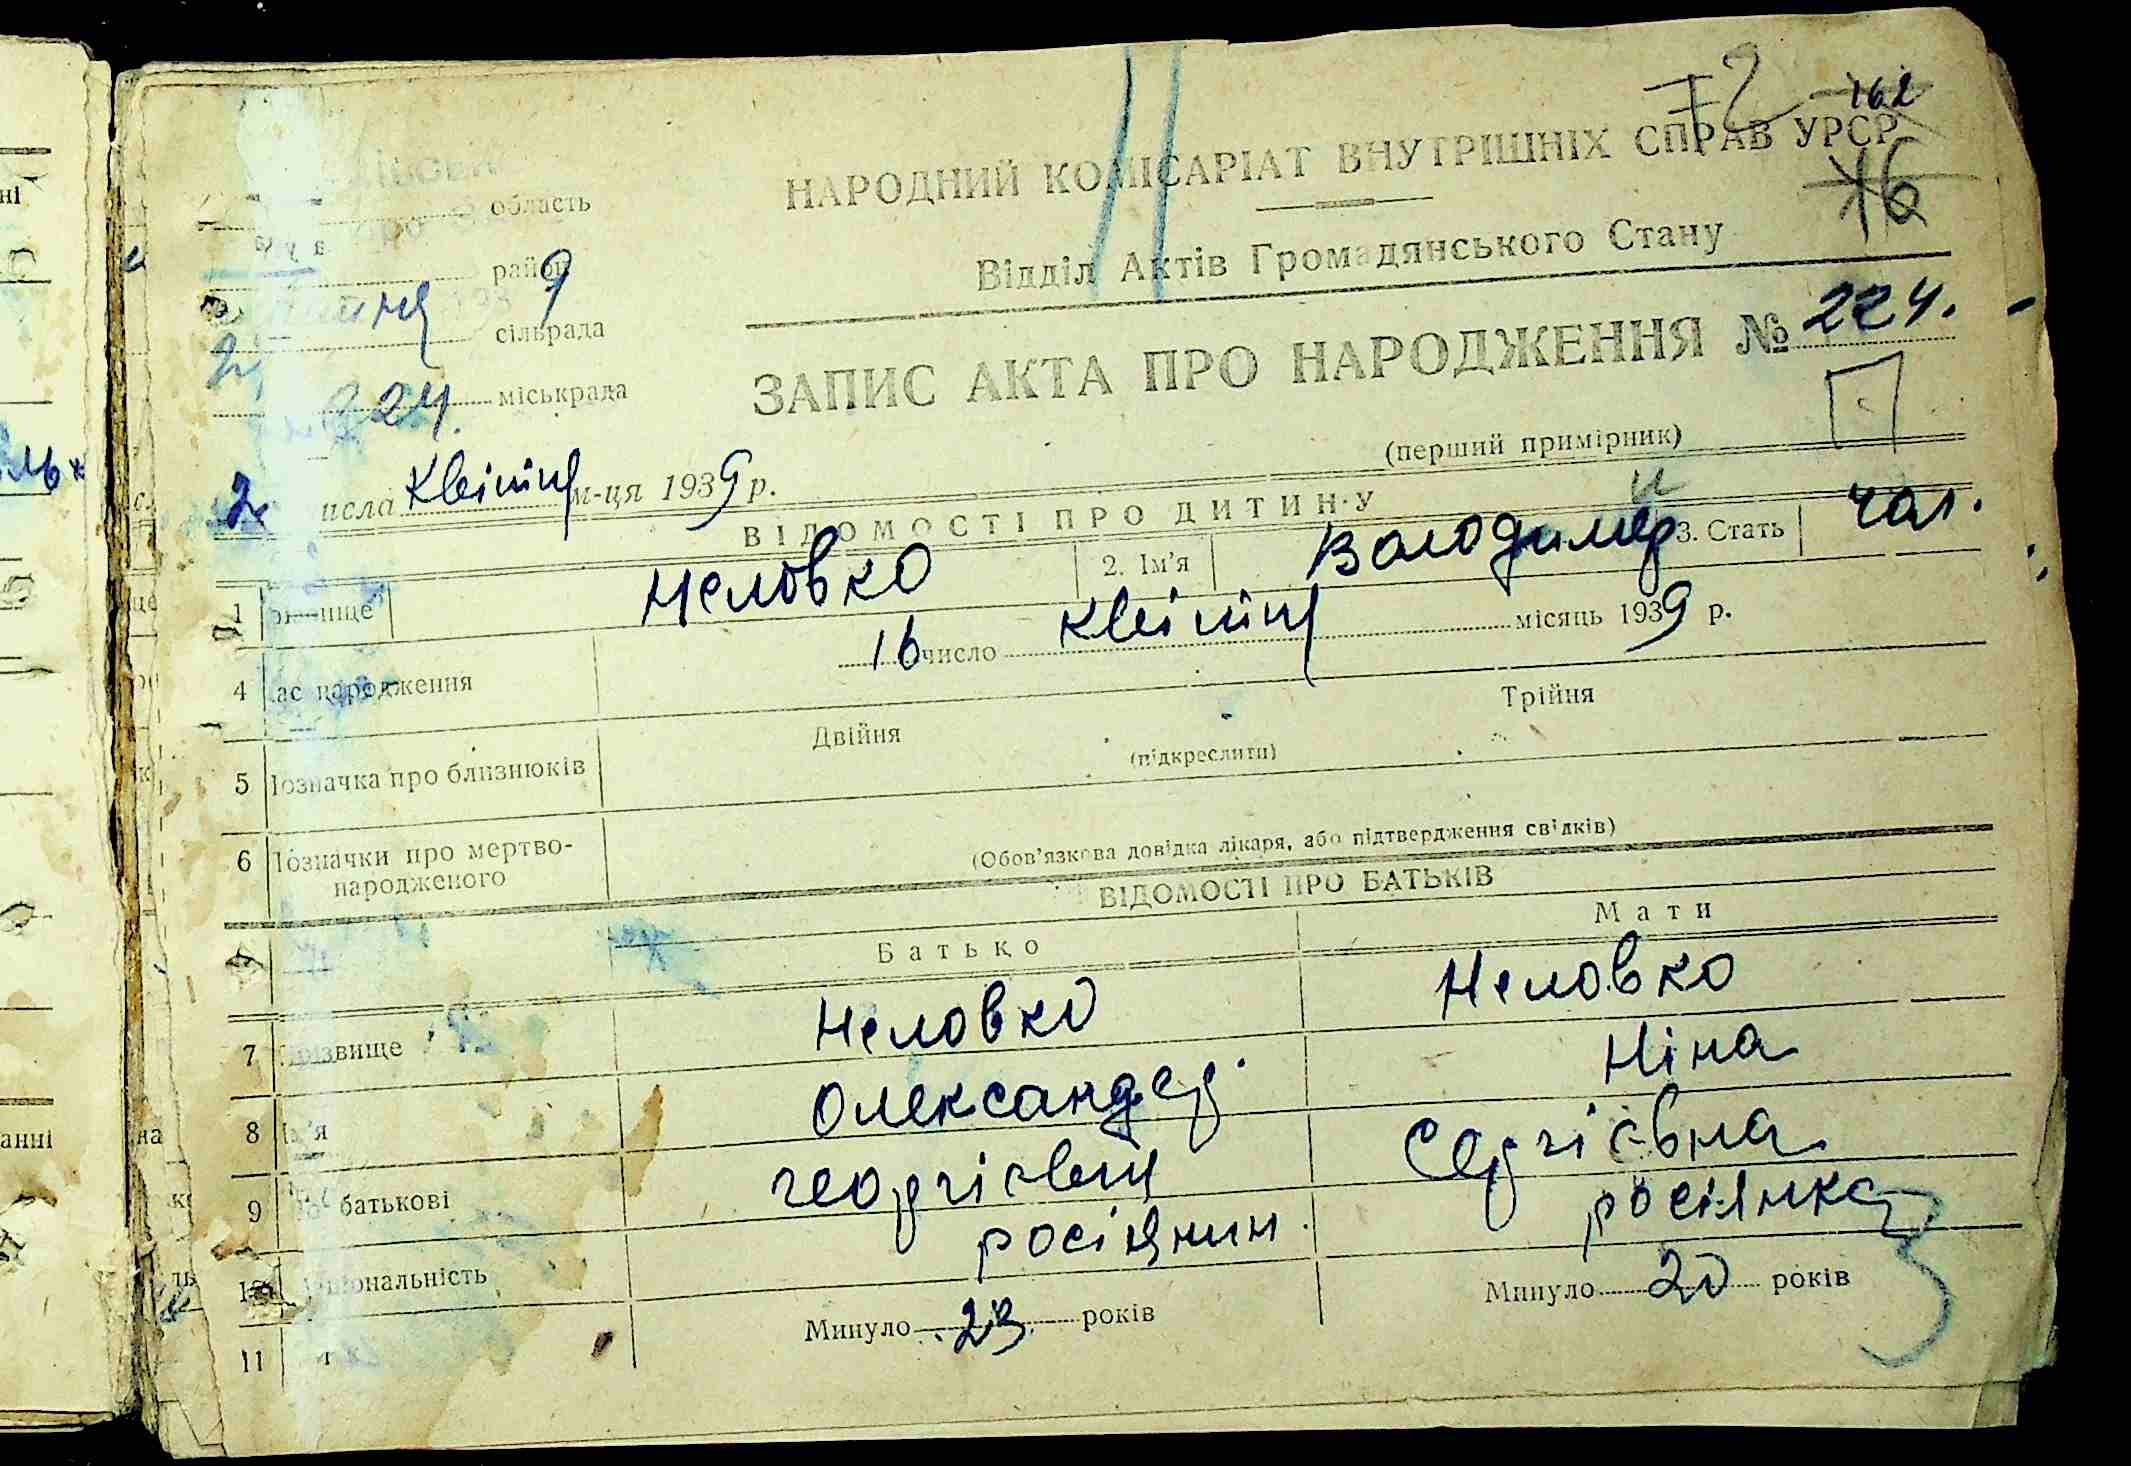 162
72
НАРОДНИЙ КОМІСАРІАТ ВНУТРІШНІХ СПРАВ УРСР
16
область
Відділ Актів Громадянського Стану
район
193 9
сільрада
ЗАПИС АКТА ПРО НАРОДЖЕННЯ № 224.
224. міськрада
(перший примірник)
2 исла квітня м-ця 1939 р.
ВІДОМОСТІ ПРО ДИТИНУ
1 ище Неловко 2. Ім'я Володимир 3. Стать чол.
4 ас народження 16 число квітня місяць 1939 р.
5 означка про близнюків Двійня (підкреслити) Трійня
6 означки про мертво-
народженого (Обов'язкова довідка лікаря, або підтвердження свідків)
ВІДОМОСТІ ПРО БАТЬКІВ
Батько Мати
7 ізвище Неловко Неловко
8 м'я Олександер Ніна
9 батькові Георгієвич Сергієвна
10 ціональність росіянин росіянка
11 Минуло 23 років Минуло 20 років
анні